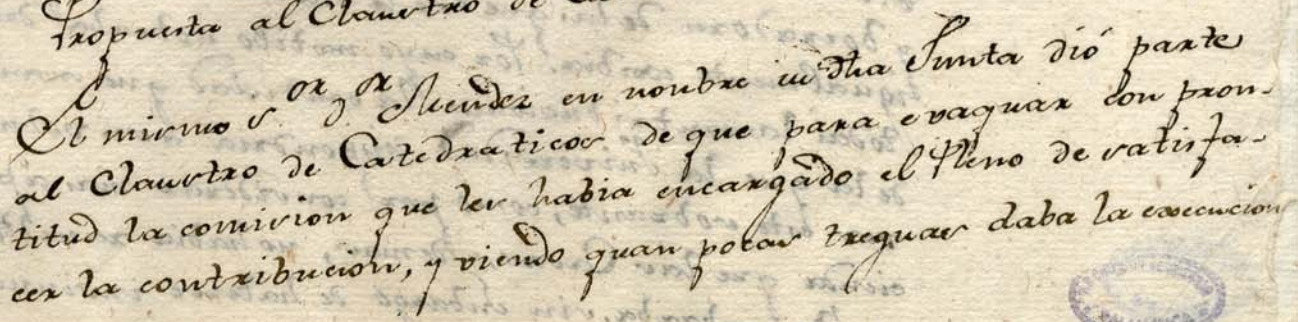 Propuesta al Claustro de
El mismo Sor Dor Mendez en nonbre de dha Junta dió parte
al Claustro de Catedraticos de que para evaquar con pron-
titud la comision que les habia encargado el Pleno de satisfa-
cer la contribucion, y viendo quan pocas treguas daba la execucion